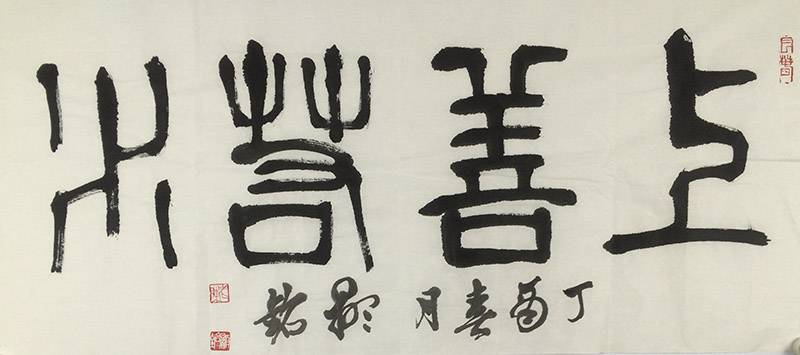 上善若水
丁酉春月